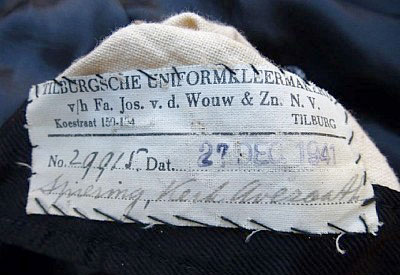 TILBURGSCHE UNIFORMKLEERMAKERIJ
v/h Fa. Jos. v. d. Wouw & Zn. N. V.
Koestraat 150-154 TILBURG
No. 29915 Dat. 27 DEC 1941
Spiering